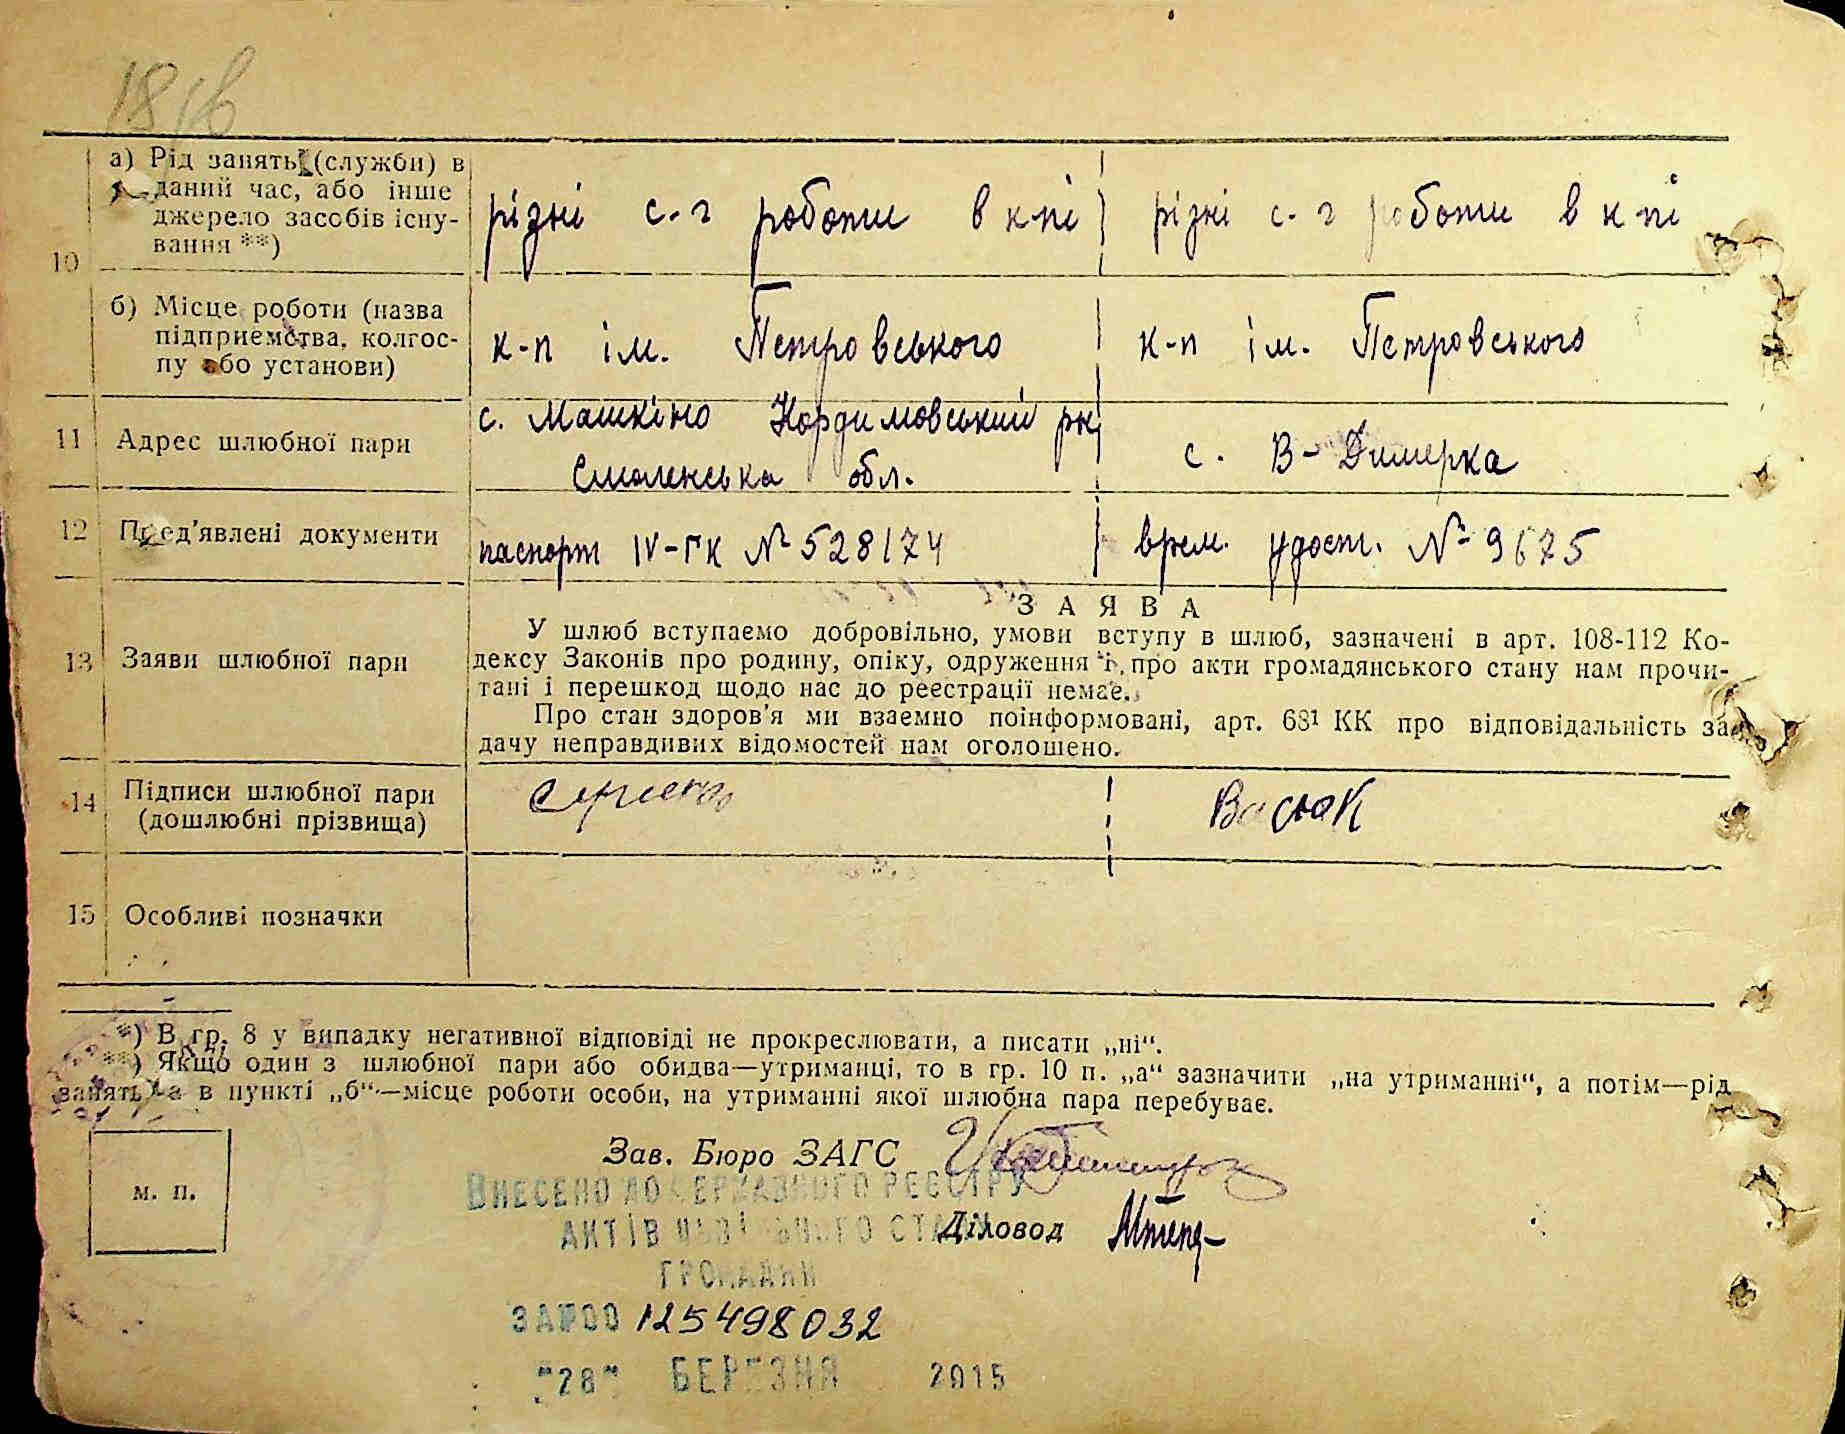 18
а) Рід занять (служби) в
даний час, або інше
джерело засобів існу-
вання **)
10
різні с-г роботи в к-пі
різні с-г роботи в к-пі
б) Місце роботи (назва
підприємства, колгос-
пу або установи)
к-п ім. Петровського
к-п ім. Петровського
11 Адрес шлюбної пари
с. Машкіно Кардимовський рн
Смоленська обл.
с. В-Димерка
12 Пред'явлені документи
паспорт IV-ГК № 528174
врем. удост. № 9675
13 Заяви шлюбної пари
ЗАЯВА
У шлюб вступаємо добровільно, умови вступу в шлюб, зазначені в арт. 108-112 Ко-
дексу Законів про родину, опіку, одруження і про акти громадянського стану нам прочи-
тані і перешкод щодо нас до реєстрації немає.
Про стан здоров'я ми взаємно поінформовані, арт. 68¹ КК про відповідальність за
дачу неправдивих відомостей нам оголошено.
14 Підписи шлюбної пари
(дошлюбні прізвища)
Васюк
15 Особливі позначки
*) В гр. 8 у випадку негативної відповіді не прокреслювати, а писати „ні“.
**) Якщо один з шлюбної пари або обидва—утриманці, то в гр. 10 п. „а“ зазначити „на утриманні“, а потім—рід
занять, а в пункті „б“—місце роботи особи, на утриманні якої шлюбна пара перебуває.
Зав. Бюро ЗАГС
м. п.
ВНЕСЕНО ДО ДЕРЖАВНОГО РЕЄСТРУ
АКТІВ ЦИВІЛЬНОГО СТАНУ
Діловод
ГРОМАДЯН
ЗА №00 125498032
"28" БЕРЕЗНЯ 2015